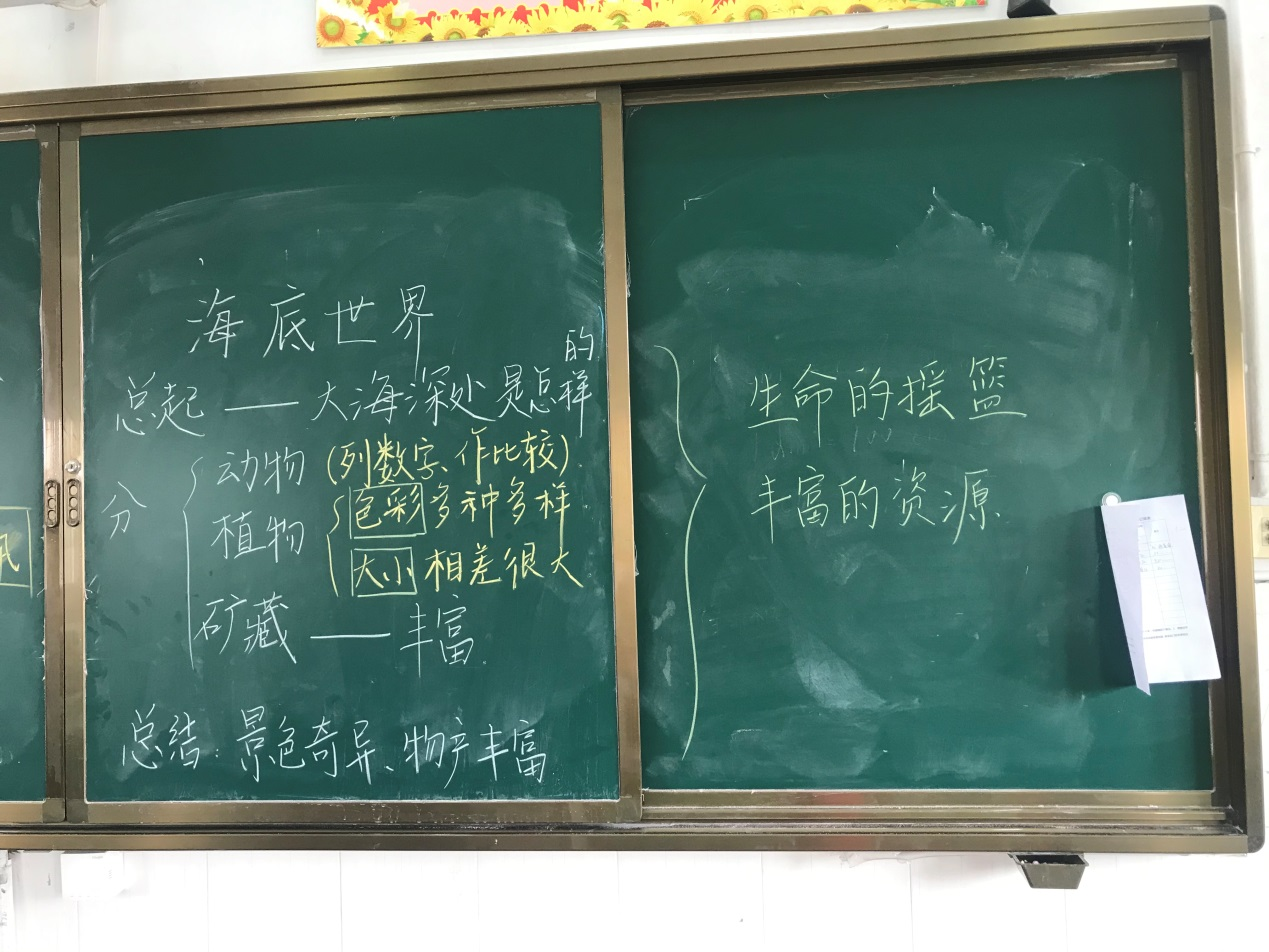 海底世界
总起 — 大海深处是怎样的
分
动物 (列数字、作比较).
植物
色彩多种多样
大小相差很大
矿藏 — 丰富.
总结: 景色奇异、物产丰富
生命的摇篮
丰富的资源.